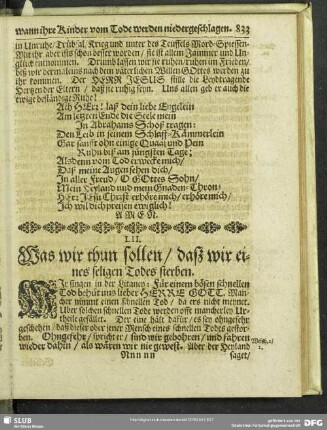 wann ihre Kinder vom Tode werden niedergeschlagen. 833
in Unruhe / Trübsal, Krieg und unter des Teuffels Mord-Spiessen.
Mit ihr aber ists schon besser worden / sie ist allem Jammer und Un-
glück entnommen. Drumb lassen wir sie ruhen / ruhen im Frieden /
biß wir dermaleins nach dem väterlichen Willen Gottes werden zu
ihr kommen. Der HERR JESUS stille die Leydtragende
Hertzen der Eltern / daß sie ruhig seyn. Uns allen geb er auch die
ewige beständige Ruhe!
Ach HErr! laß dein liebe Engelein
Am letzten Ende die Seele mein
In Abrahams Schoß tragen:
Den Leib in seinem Schlaff-Kämmerlein
Gar sanfft ohn einige Quaal und Pein
Ruhn biß am jüngsten Tage;
Alsdenn vom Tod erwecke mich /
Daß meine Augen sehen dich /
In aller Freud / O GOttes Sohn /
Mein Heyland und mein Gnaden-Thron /
HErr JEsu Christ erhöre mich / erhöre mich /
Ich wil dich preisen ewiglich!
AMEN.
LII.
Was wir thun sollen / daß wir ei-
nes seligen Todes sterben.
WIr singen in der Litaney: Für einem bösen schnellen
Tod behüt uns lieber HERRE GOTT. Man-
cher nimmt einen schnellen Tod / da ers nicht meinet.
Uber solchen schnellen Tode werden offt mancherley Ur-
theile gefället. Der eine hält dafür / es sey ohngefehr
geschehen / daß dieser oder jener Mensch eines schnellen Todes gestor-
ben. Ohngefehr / spricht er / sind wir gebohren / und fahren
wieder dahin / als wären wir nie gewest. Aber der Heyland
Nnnnn
saget /
SLUB
DFG
gefördert von der
Deutschen Forschungsgemeinschaft